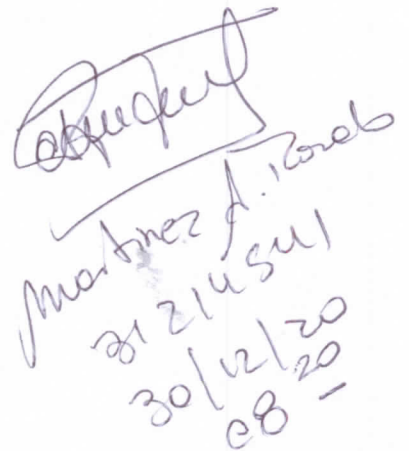 Martinez A.
31 214541
30/12/20
08 20